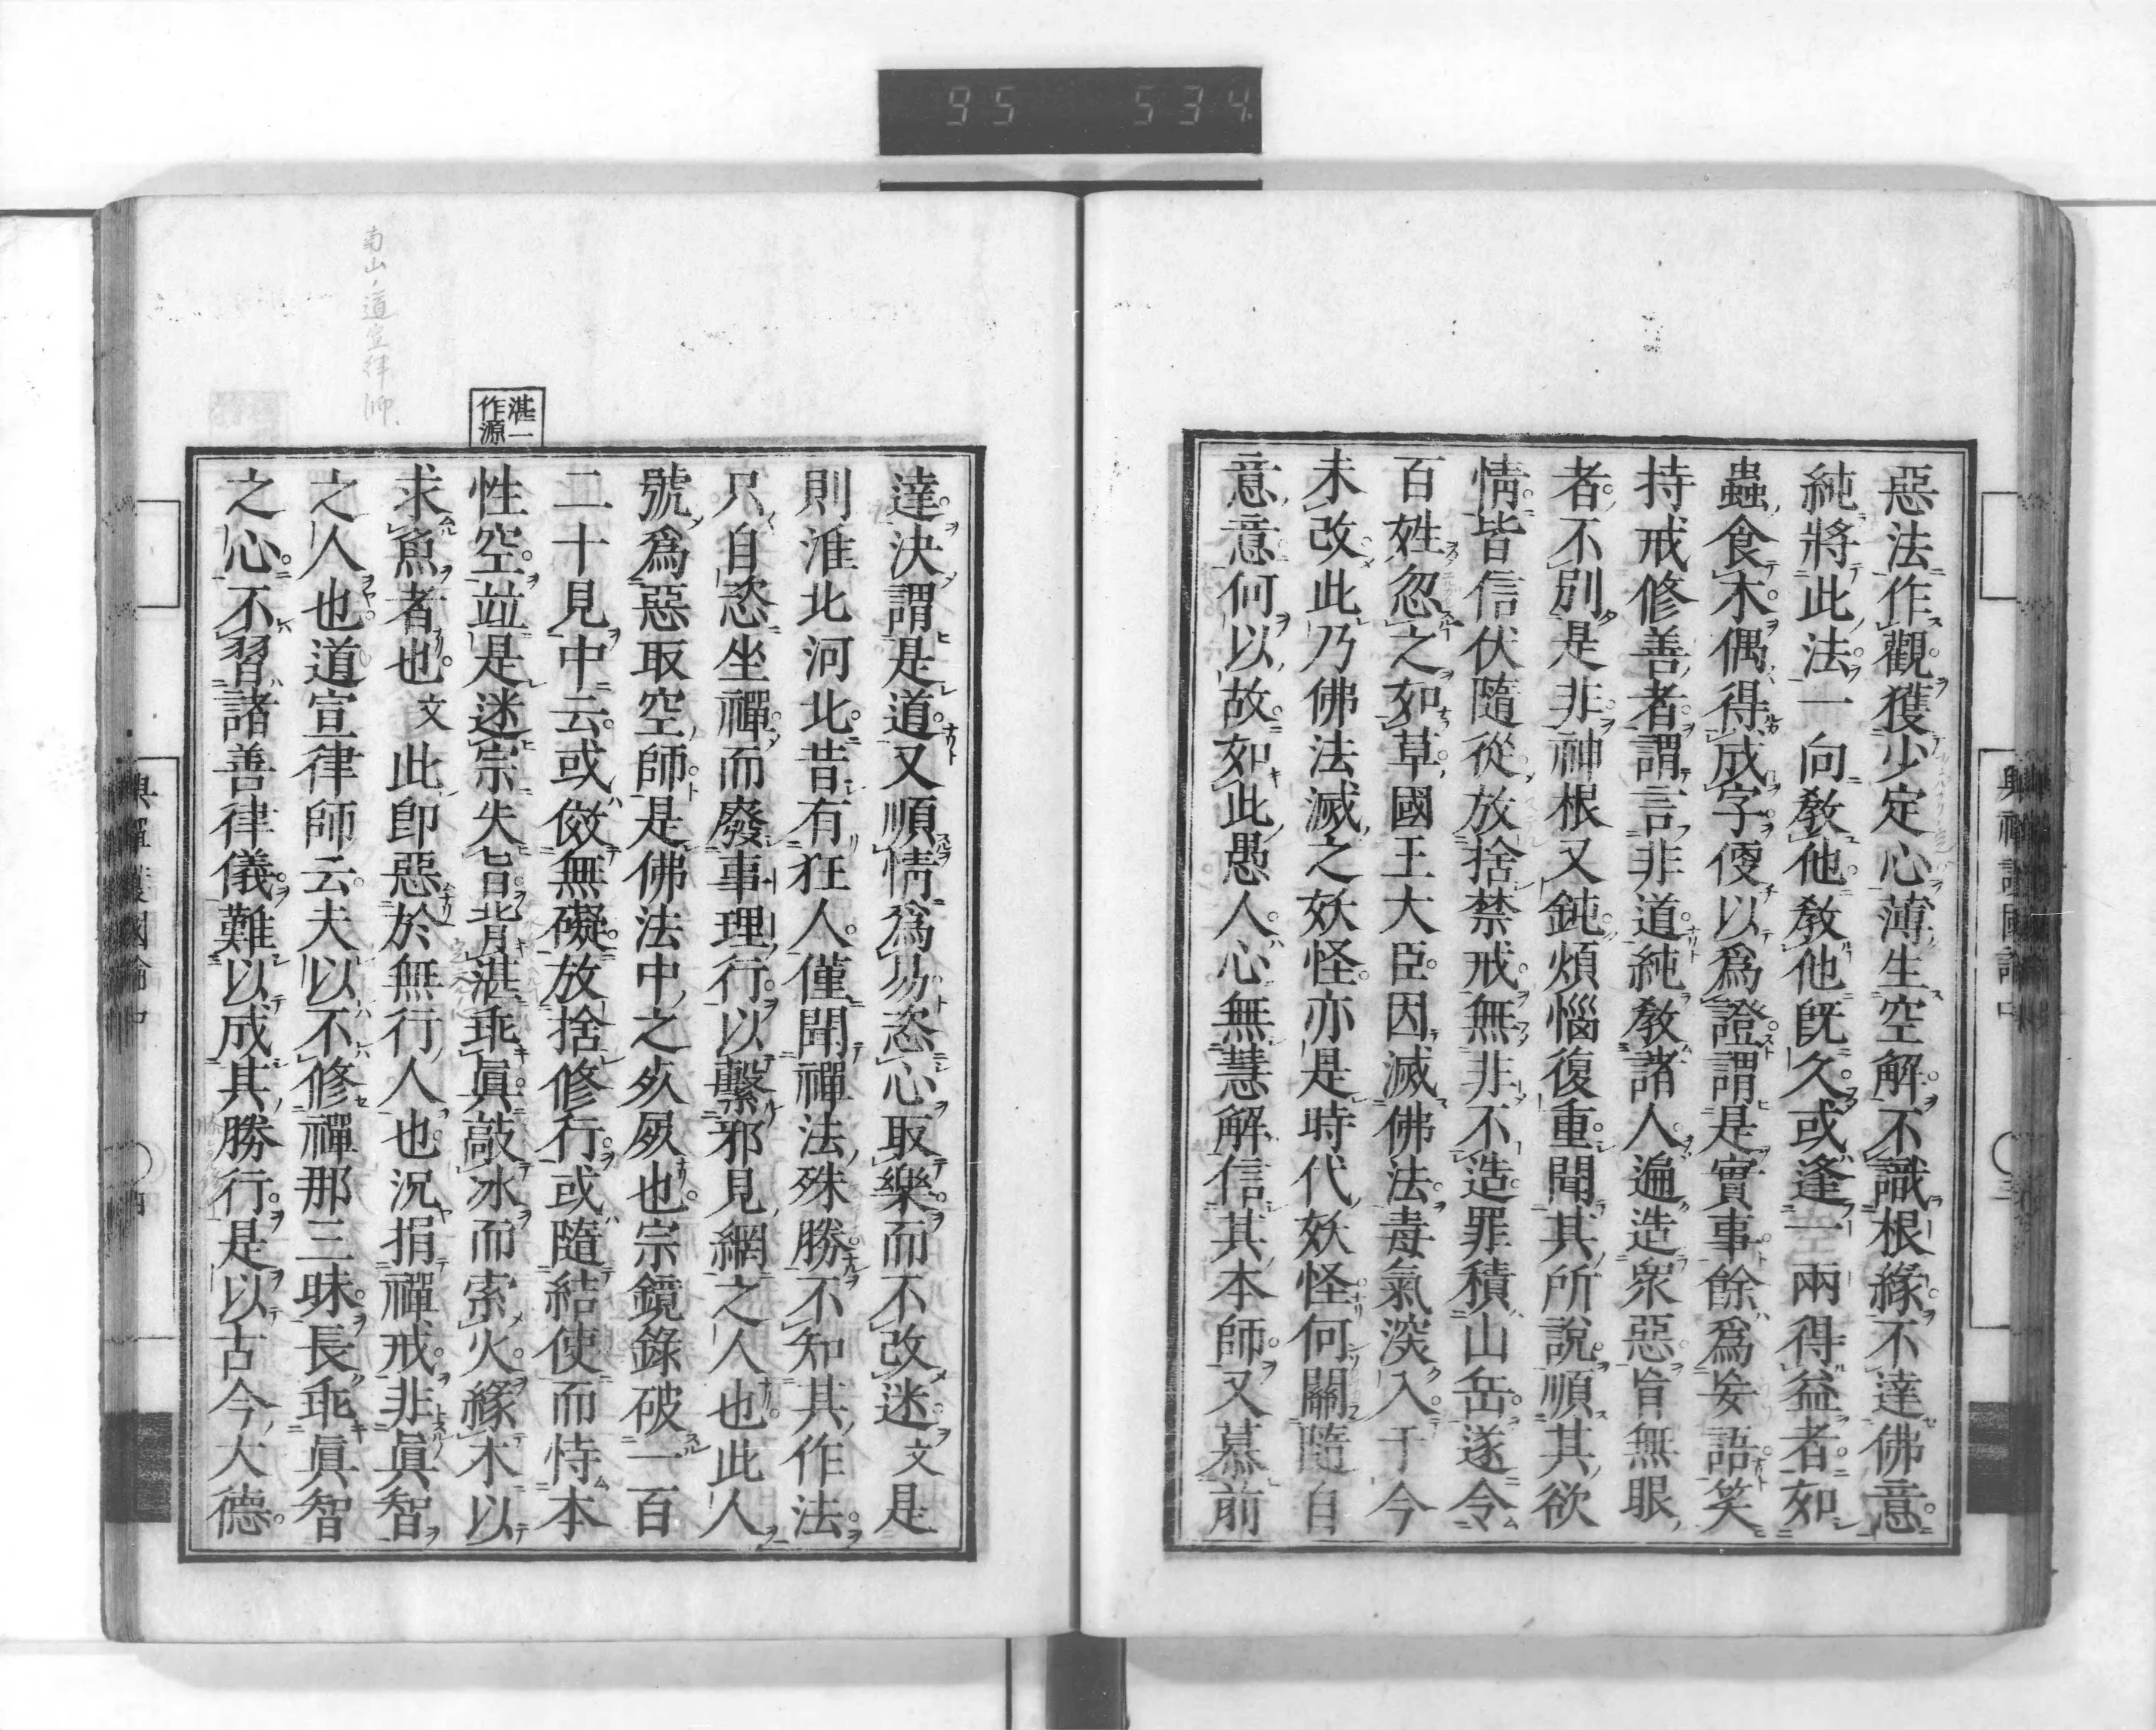 95 534
惡法作觀獲少定心薄生空解不識根緣不達佛意
純將此法一向敎他敎他旣久或逢一兩得益者如
蟲食木偶得成字便以爲證謂是實事餘爲妄語笑
持戒修善者謂言非道純敎諸人遍造衆惡盲無眼
者不別是非神根又鈍煩惱復重聞其所說順其欲
情皆信伏隨從放捨禁戒無非不造罪積山岳遂令
百姓忽之如草國王大臣因滅佛法毒氣深入于今
未改此乃佛法滅之妖怪亦是時代妖怪何關隨自
意意何以故如此愚人心無慧解信其本師又慕前
達決謂是道又順情爲易恣心取樂而不改迷文是
則淮北河北昔有狂人僅聞禪法殊勝不知其作法
只自恣坐禪而廢事理行以繫邪見網之人也此人
號爲惡取空師是佛法中之死屍也宗鏡錄破一百
二十見中云或傚無礙放捨修行或隨結使而恃本
性空竝是迷宗失旨背湛乖眞敲冰而索火緣木以
求魚者也文此卽惡於無行人也況捐禪戒非眞智
之人也道宣律師云夫以不修禪那三昧長乖眞智
之心不習諸善律儀難以成其勝行是以古今大德
湛一
作源
南山道宣律師
興禪護國論中